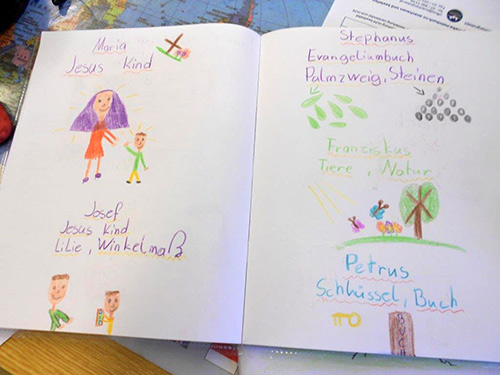 Maria
Jesus Kind
Josef
Jesus Kind
Lilie, Winkelmaß
Stephanus
Evangeliumbuch
Palmzweig, Steinen
Franziskus
Tiere, Natur
Petrus
Schlüssel, Buch